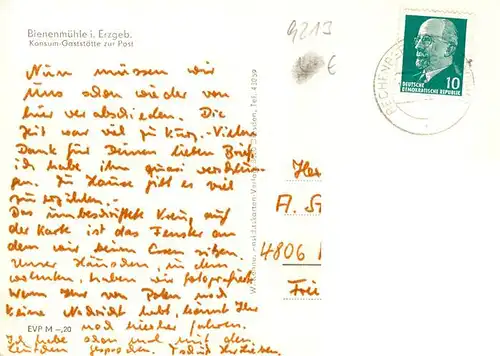 Bienenmühle i. Erzgeb.
Konsum-Gaststätte zur Post
9213
€
10
DEUTSCHE
DEMOKRATISCHE REPUBLIK
RECHENBERG-
Nun müssen wir
uns schon wieder von
hier verabschieden. Die
Zeit war viel zu kurz. - Vielen
Dank für Deinen lieben Brief,
ich habe ihn quasi verschlun-
gen. Zu Hause gibt es viel
zu erzählen. -
Das unbeschriftete Kreuz auf
der Karte ist das Fenster an
dem wir beim Essen sitzen.
Unser Häuschen, in dem
wir wohnten, haben wir fotografiert.
Wenn Ihr von Polen noch
keine Nachricht habt, könnt Ihr
noch hierher fahren.
Ich habe schon mal mit den
Leuten gesprochen.
EVP M -,20
4806